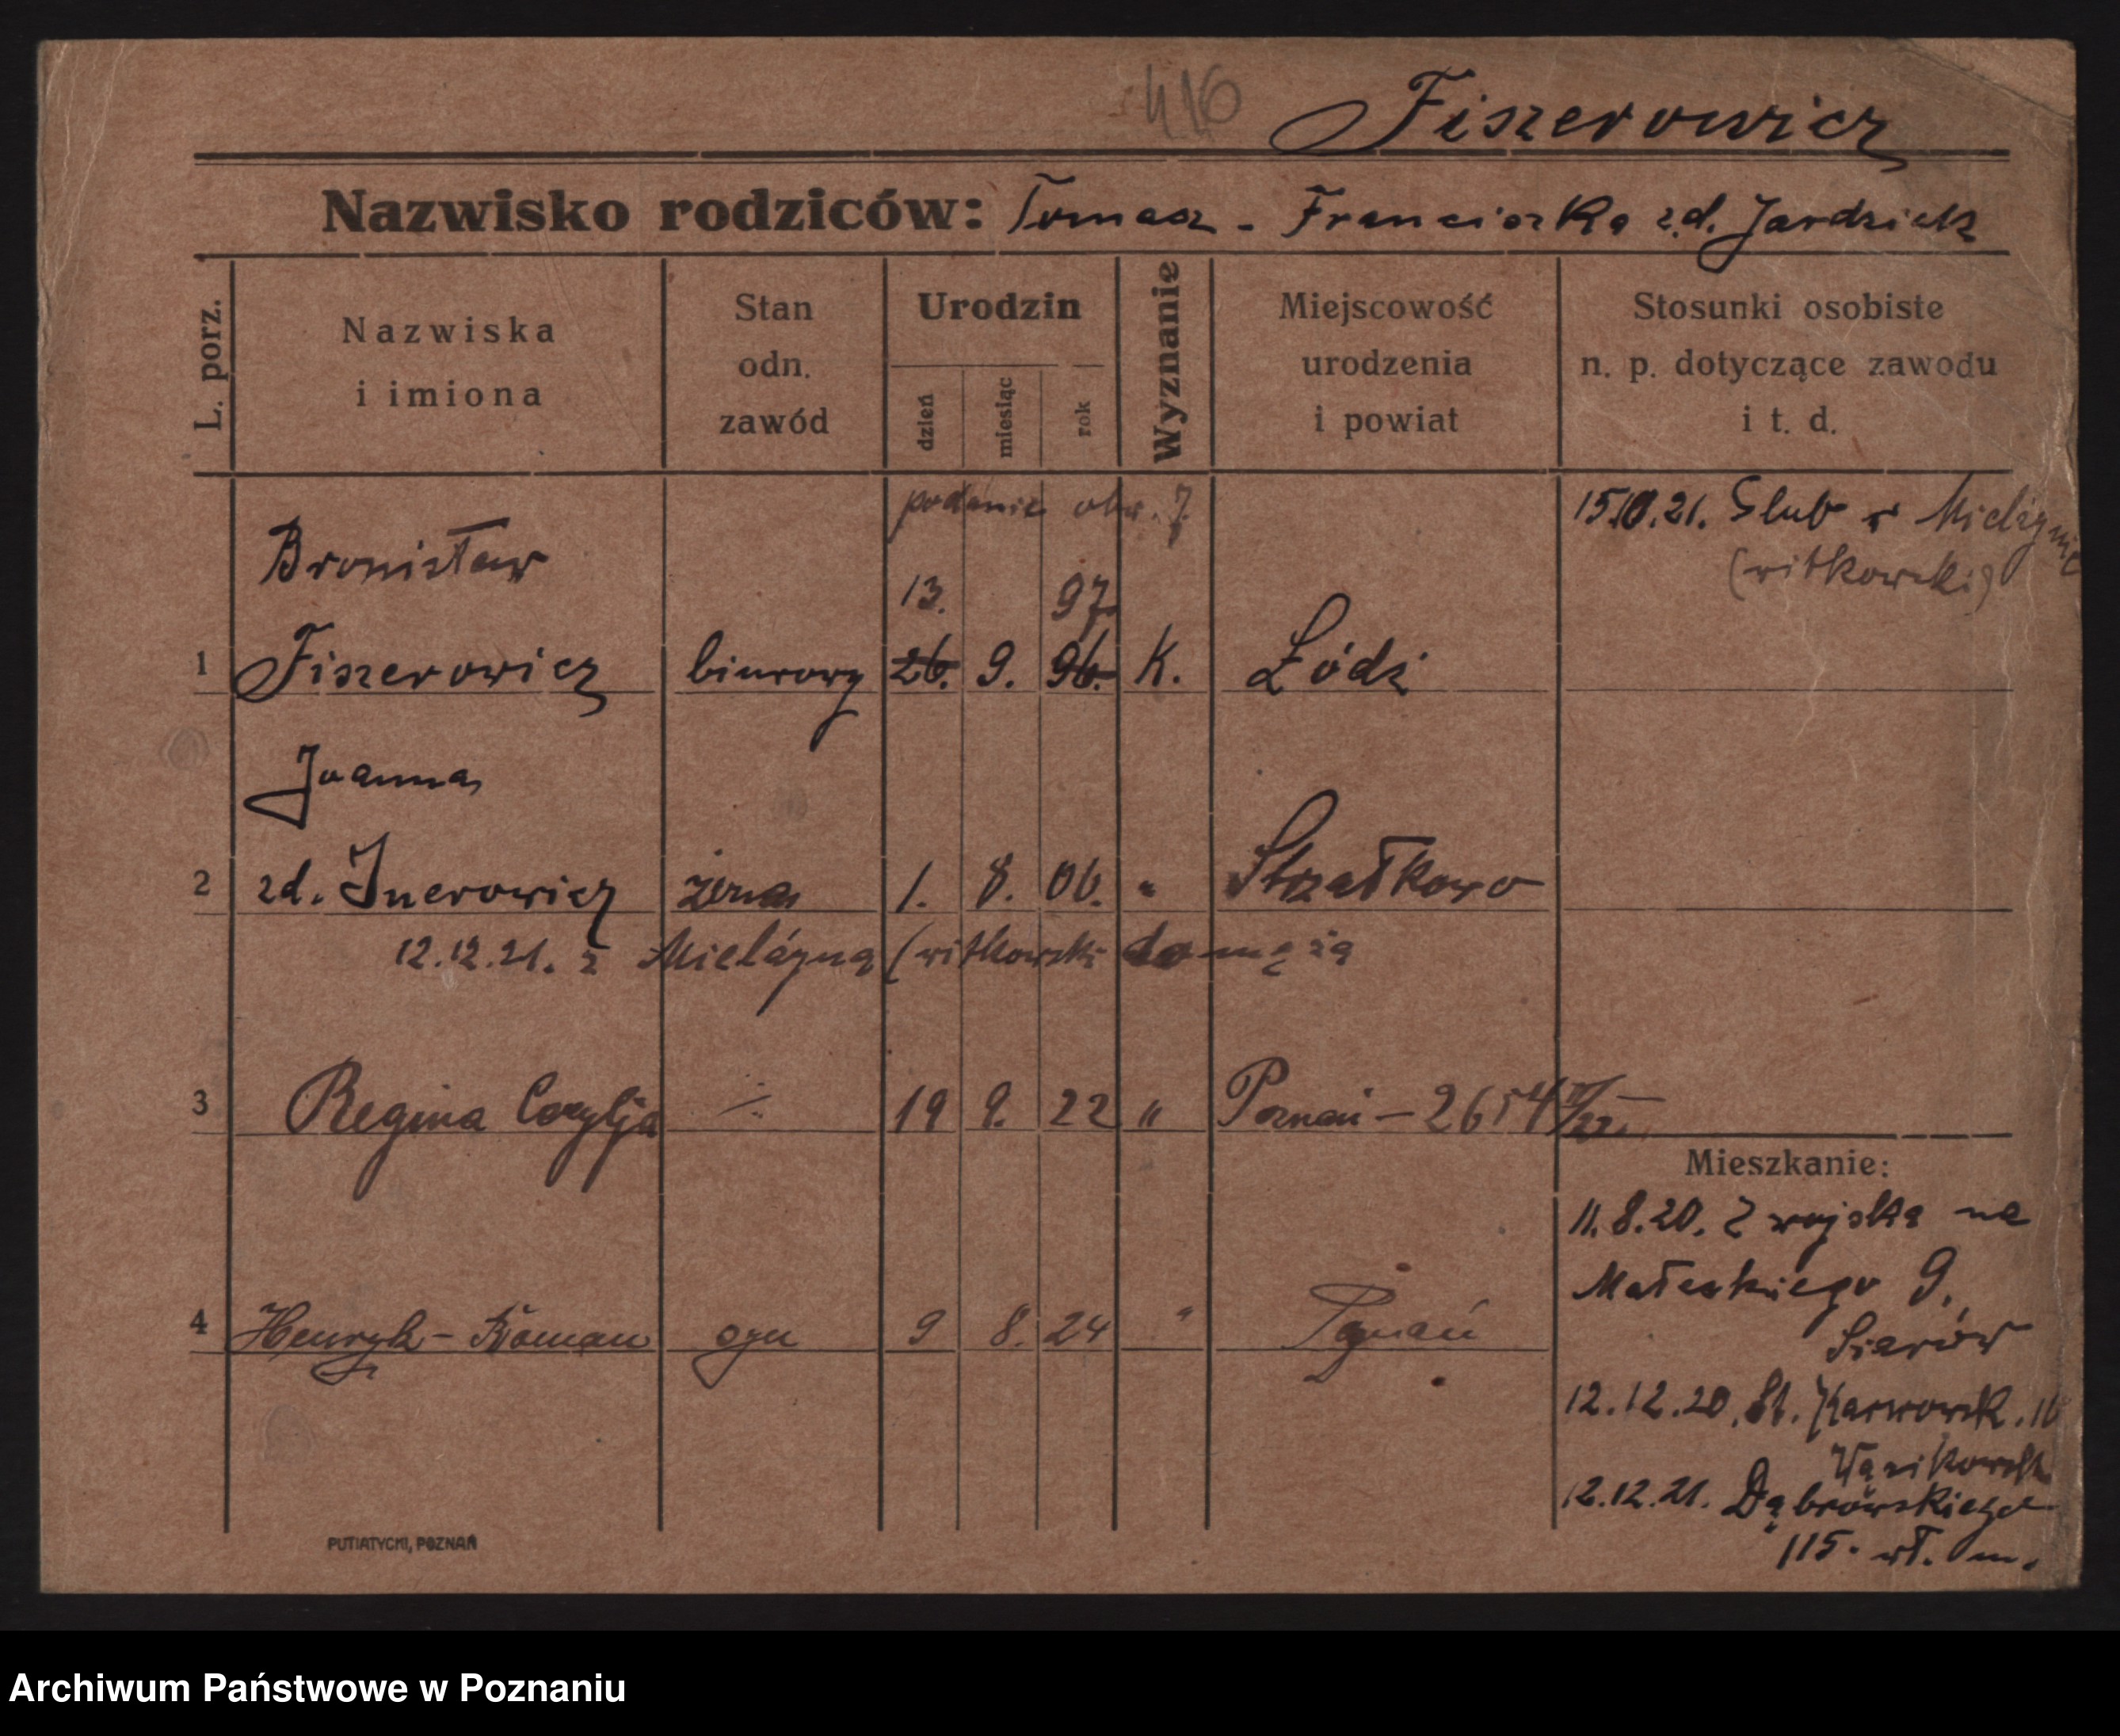 416
Fiszerowicz
Nazwisko rodziców: Tomasz - Franciszka z.d. Jardziek
L. porz.
Nazwiska
i imiona
Stan
odn.
zawód
Urodzin
dzień
miesiąc
rok
Wyznanie
Miejscowość
urodzenia
i powiat
Stosunki osobiste
n. p. dotyczące zawodu
i t. d.
podanie obw. 7.
15.10.21. Ślub w Mielżynie
(witkowski)
Bronisław
13. 97.
1 Fiszerowicz biurowy 26. 9. 96. K. Łódź
Joanna
2 zd. Inerowicz żona 1. 8. 00. " Strzałkowo
12.12.21. z Mielżyna (witkowski do męża
3 Regina Cecylja -/- 19 9. 22 " Poznań - 2654
Mieszkanie:
11.8.20. Z wojska na
Małeckiego 9.
4 Henryk - Roman syn 9 8. 24 " Poznań
Sierów
12.12.20. St. Karwowsk. 10
12.12.21. Dąbrowskiego
115. wł. m.
PUTIATYCKI, POZNAŃ
Archiwum Państwowe w Poznaniu